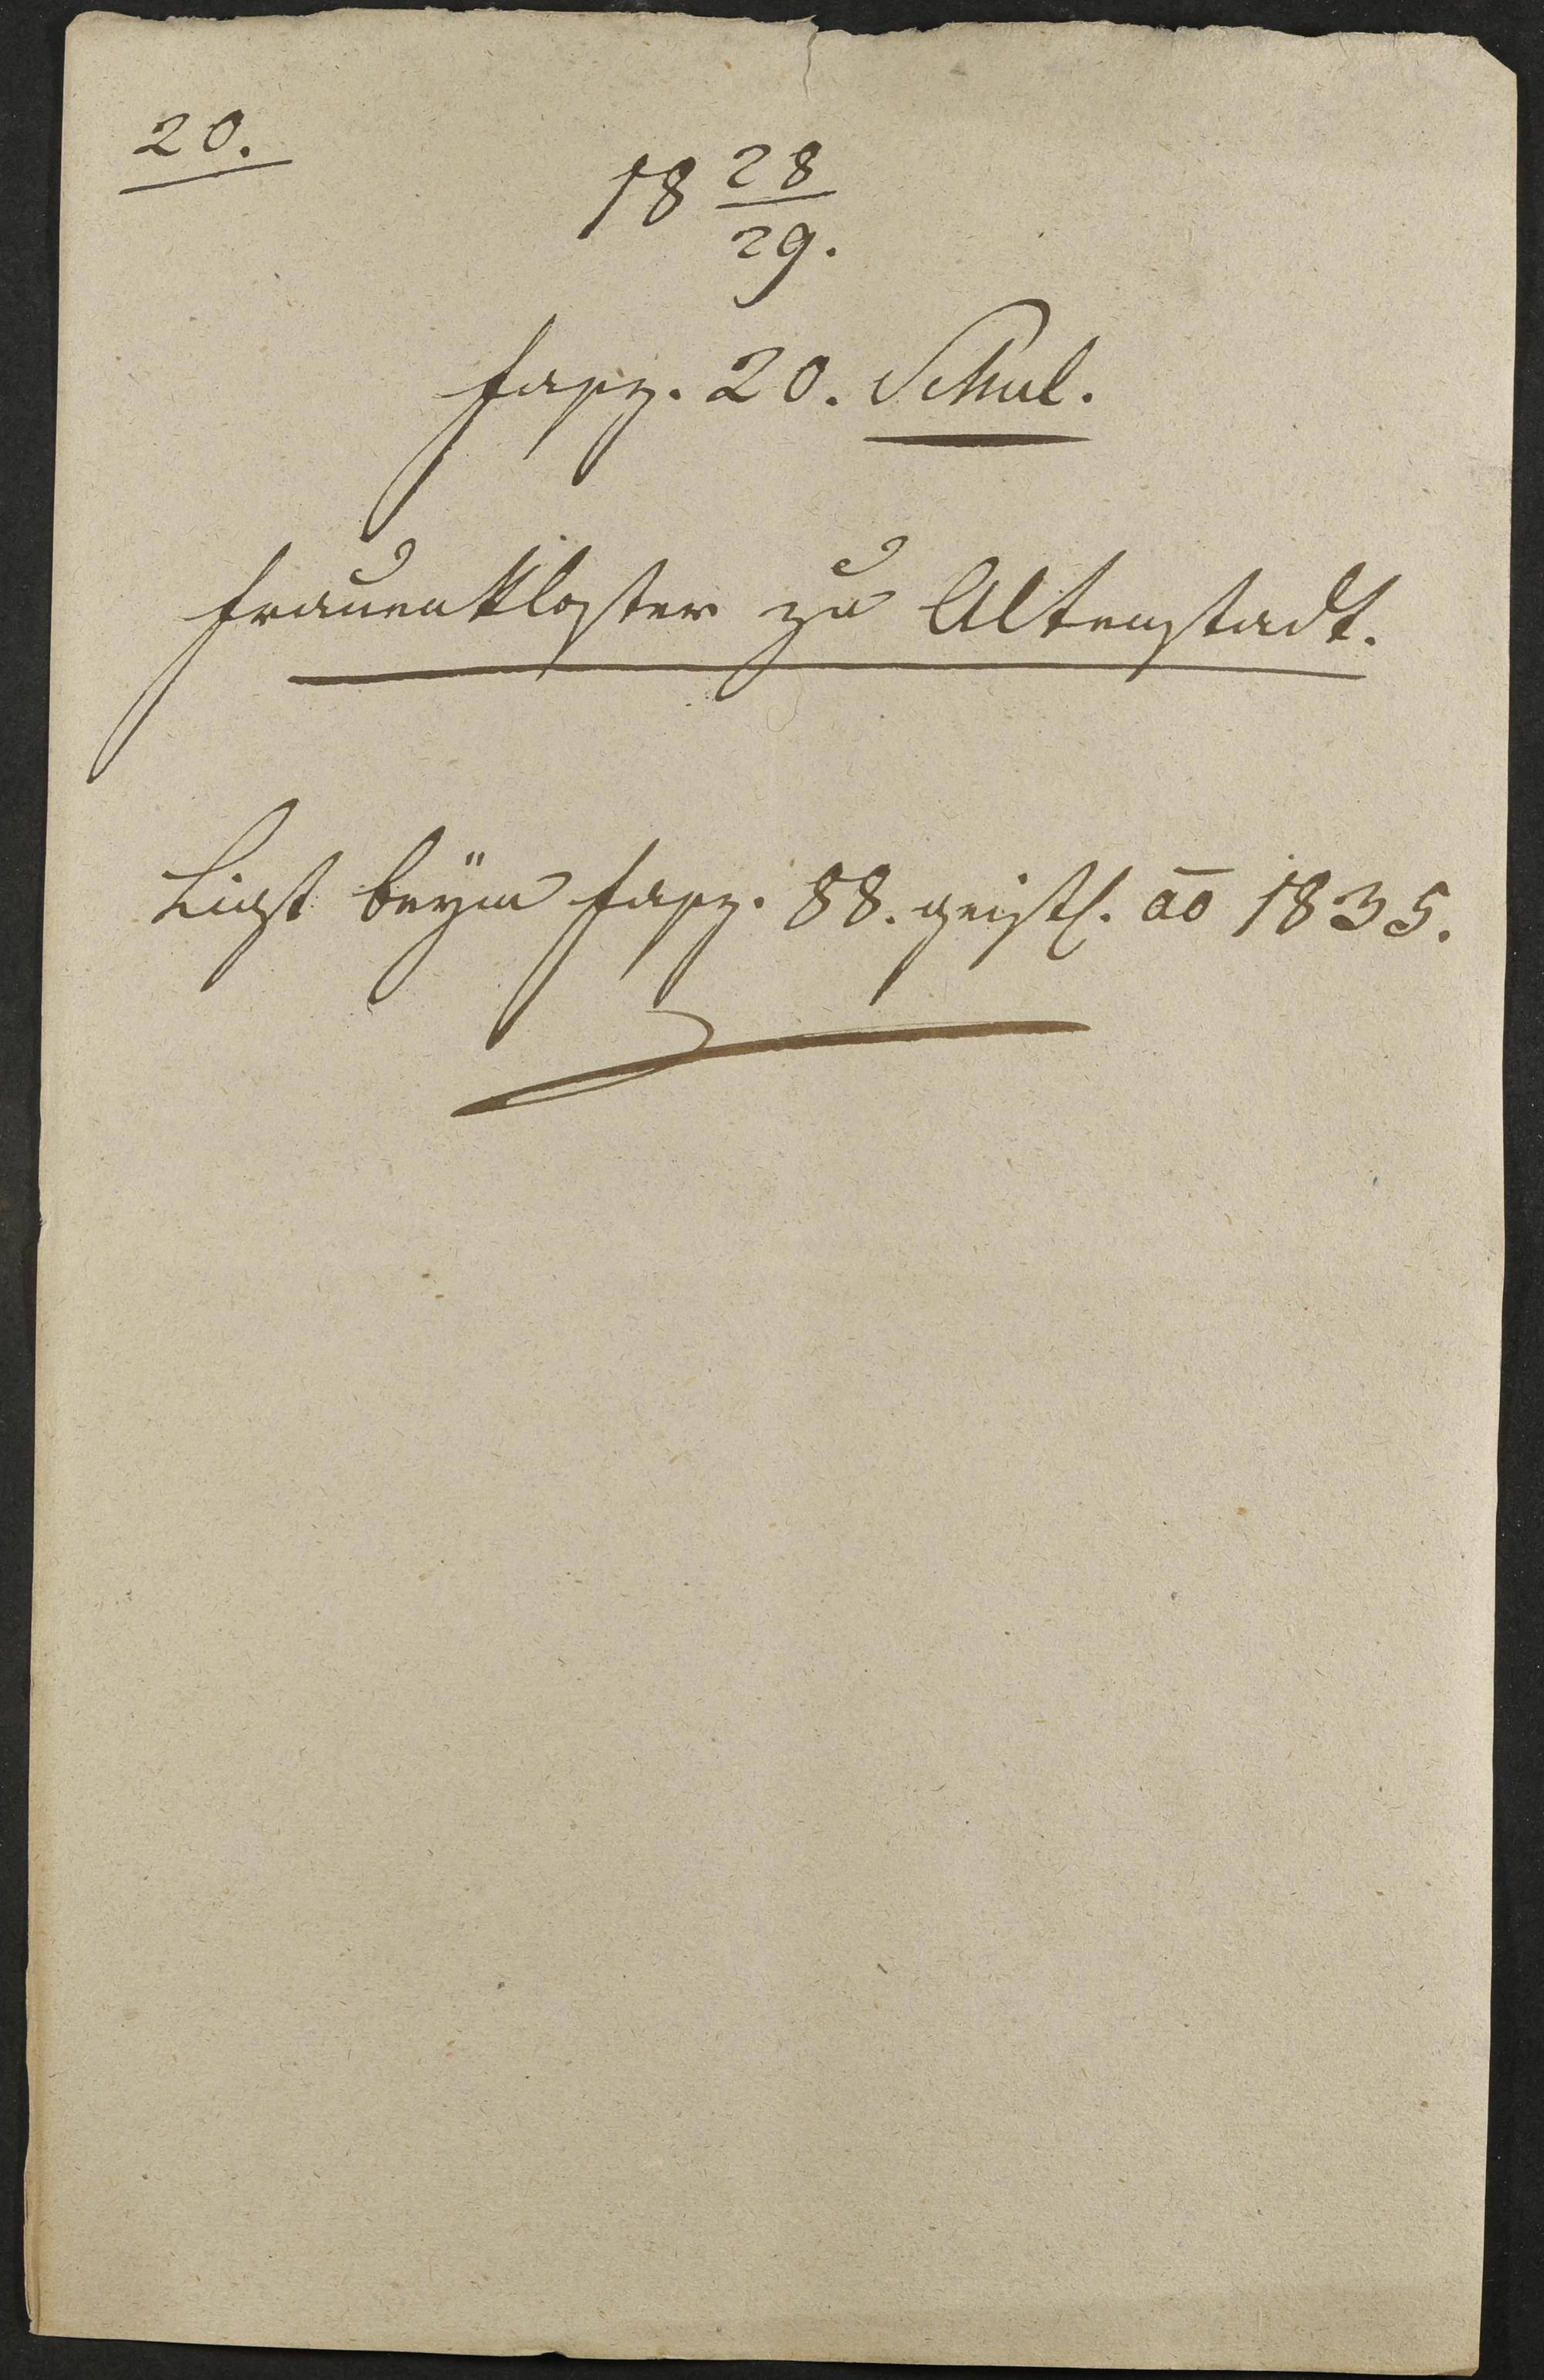 20.
18 28/29.
Fasz. 20. Schul.
Frauenkloster zu Altenstadt.
Liegt beÿm Fasz. 88. geistl. ao 1835.